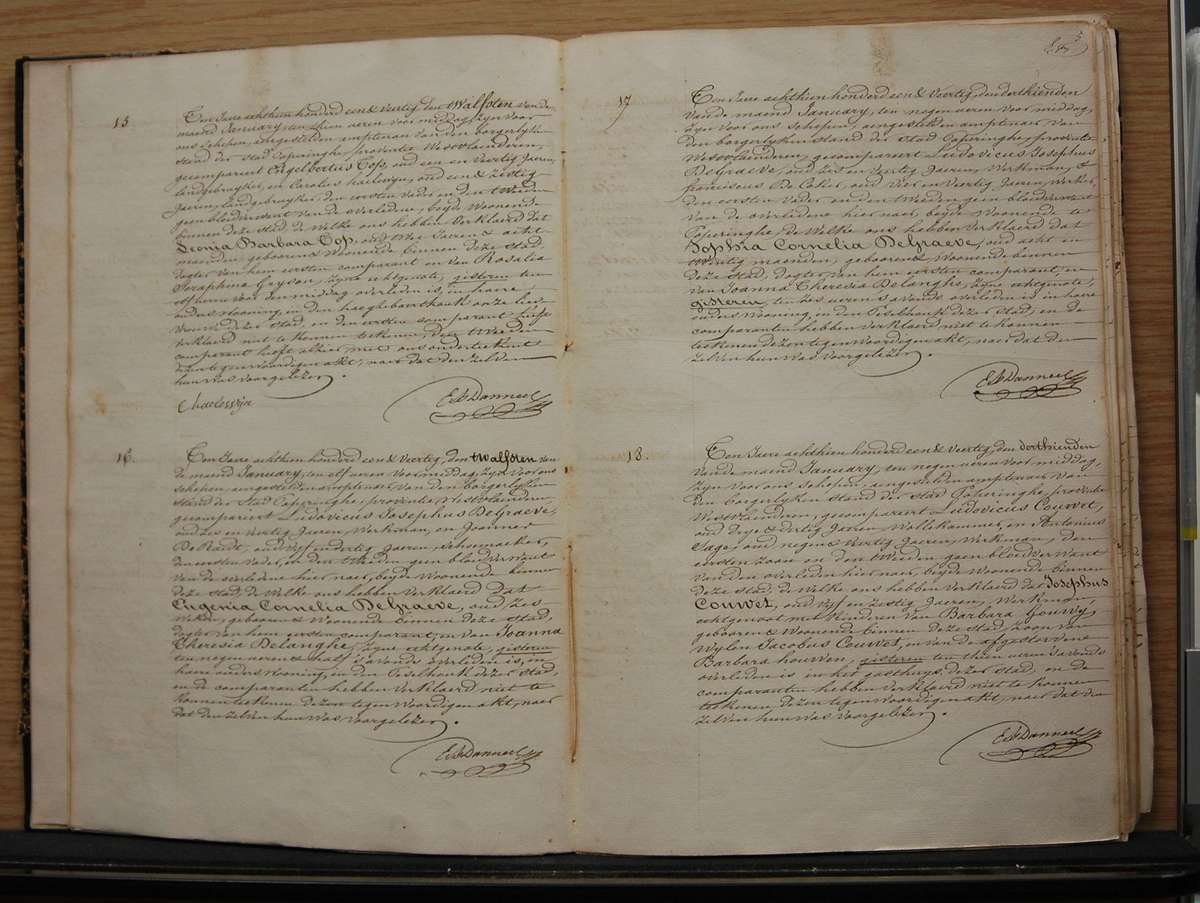 15
Ten Jaere achthien honderd een & Veertig, den twalfsten van de
maend January, ten thien ueren voor middag, zyn voor
ons schepen, aengestelden amptenaer van den borgerlyken
stand der stad Poperinghe, provintie Westvlaenderen,
gecompareert Engelbertus Top, oud een en Veertig Jaeren,
landgebruyker, en Carolus haelewyn, oud een & zestig
Jaeren, Landgebruyker, den eersten vader en den tweeden
geen bloedverwant van de overledene, beyde Woonende
binnen deze stad, de Welke ons hebben Verklaerd dat
Leonia Barbara Top, oud twee Jaeren & acht
maenden, geboore & Woonende binnen deze stad,
dogter van hem eersten comparant en van Rosalia
Seraphina Geyson, zyne echtgenote, gisteren ten
uren voor den middag overleden is, in haere
ouders wooning, in den
dezer stad, en den eersten comparant heeft
verklaerd niet te konnen tekenen, den tweeden
comparant heeft alhier met ons onderteekent
dezen tegenwoordigen akt, naer dat den zelven
hun was voorgelezen.
C haelewyn
16.
Ten Jaere achthien honderd een & Veertig, den twalfsten van
de maend January, ten elf ueren Voor middag, zyn voor ons
schepen, aengestelden amptenaer van den borgerlyken
stand der stad Poperinghe, provintie Westvlaenderen,
gecompareert Ludovicus Josephus DeGraeve,
oud zes en Veertig Jaeren, Werkman, en Joannes
De oud vyf en dertig Jaeren, Schoemaeker,
den eersten vader, en den tweeden geen bloedverwant
van de overledene hier naer, beyde Woonende binnen
deze stad, de Welke ons hebben verklaerd dat
Eugenia Cornelia DeGraeve, oud zes
Weken, geboore & Woonende binnen deze stad,
dogter van hem eersten comparant, en van Joanna
Theresia Delanghe, zyne echtgenote, gisteren
ten negen ueren & half s'avonds overleden is, in
haere ouders wooning, in den Ezelhoek dezer stad,
en de comparanten hebben verklaerd niet te
konnen teekenen dezen tegenwoordigen akt, naer
dat den zelven hun was voorgelezen.
17
Ten Jaere achthien honderd een & Veertig, den derthienden
van de maend January, ten negen ueren voor middag,
zyn voor ons schepen, aengestelden amptenaer van
den borgerlyken stand der stad Poperinghe, provintie
Westvlaenderen, gecompareert Ludovicus Josephus
DeGraeve, oud zes en Veertig Jaeren, Werkman, &
franciscus De oud Vier en Veertig Jaeren, Werker,
den eersten vader en den tweeden geen bloedverwant
van de overledene hier naer, beyde Woonende te
Poperinghe, de Welke ons hebben Verklaerd dat
Sophia Cornelia DeGraeve, oud acht en
twintig maenden, geboore & Woonende binnen
deze stad, dogter van hem eersten comparant, en
van Joanna Theresia Delanghe, zyne echtgenote,
gisteren, ten zes ueren s'avonds overleden is in haere
ouders wooning, in den Ezelhoek dezer stad, en de
comparanten hebben Verklaerd niet te konnen
teekenen dezen tegenwoordigen akt, naer dat den
zelven hun was voorgelezen.
18.
Ten Jaere achthien honderd een & Veertig, den derthienden
van de maend January, ten negen ueren voor middag,
zyn voor ons schepen, aengestelden amptenaer van
den borgerlyken stand der stad Poperinghe, provintie
Westvlaenderen, gecompareert Ludovicus Couwet,
oud drye & dertig Jaeren, Wollekammer, en Antonius
oud negen & Veertig Jaeren, Werkman, den
eersten zoon en den tweeden geen bloedverwant
van den overleden hier naer, beyde Woonende binnen
deze stad, de Welke ons hebben verklaerd dat Josephus
Couwet, oud vyf en zestig Jaeren, Werkman,
echtgenoot met kinderen van Barbara Gouwy,
geboore & Woonende binnen deze stad, zoon van
Wylen Jacobus Couwet, en van de afgestorvene
Barbara houwen, gisteren ten thien ueren s'avonds
overleden is in het gasthuys dezer stad, en de
comparanten hebben verklaerd niet te konnen
teekenen dezen tegenwoordigen akt, naer dat den
zelven hun was voorgelezen.